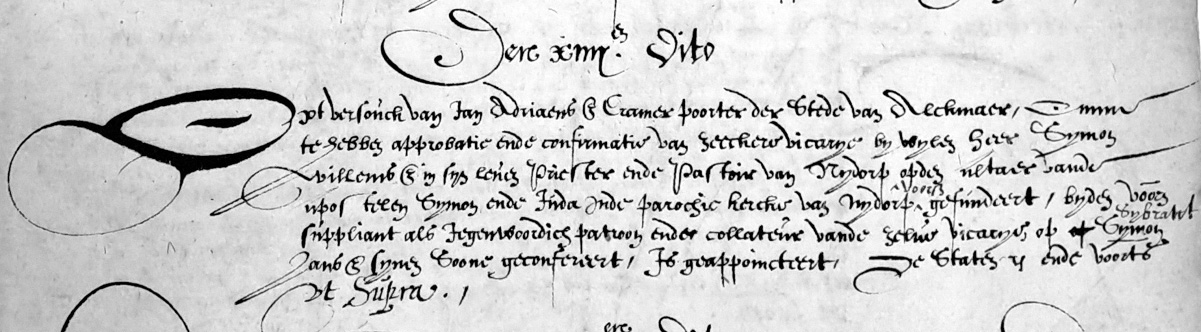 Den xiiijen. Dito
Opt versouck van Jan Adriaensz Cramer poorter der Stede van Alckmaer, Omme
te hebben approbatie ende confirmatie van zeeckere vicarye by wylen Heer Symon
Willemsz in syn leven Priester ende Pastoir van Nydorp opden altaer vande
apostelen Symon ende Juda inde parochie kercke van Nydorp voors. gefundeert, byden voors.
Suppliant als Jegenwoordich patroon ende collateur vande zelve vicarye op Sybrant Symon
Jansz synen Soone geconfereert, Is geappoincteert, De Staten ende voorts
vt Supra.